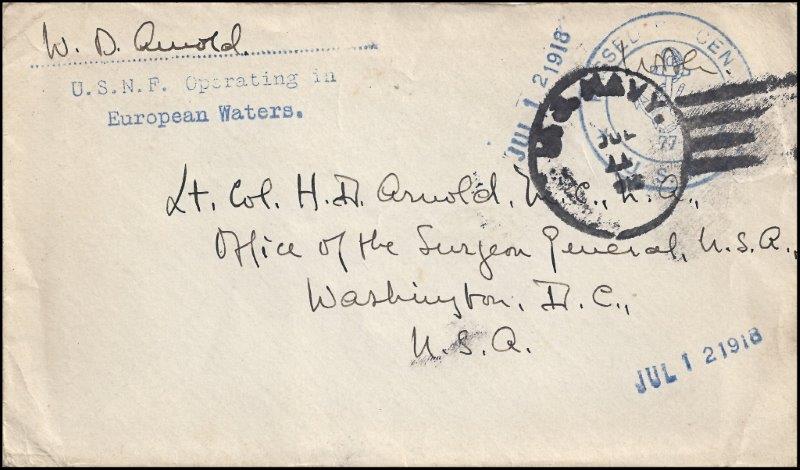 W. D. Arnold.
U.S.N.F. Operating in
European Waters.
JUL 12 1918
PASSED CENSOR
77
U.S. NAVY.
JUL
11
Lt. Col. H. D. Arnold, M.C., N.A.,
Office of the Surgeon General, U.S.A.,
Washington, D.C.,
U.S.A.
JUL 12 1918